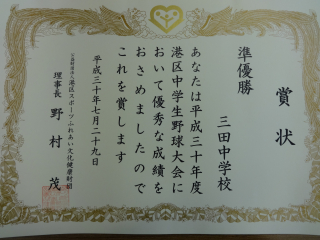 賞状
準優勝
三田中学校
あなたは平成三十年度
港区中学生野球大会に
おいて優秀な成績を
おさめましたので
これを賞します
平成三十年七月二十九日
公益財団法人港区スポーツふれあい文化健康財団
理事長 野村 茂